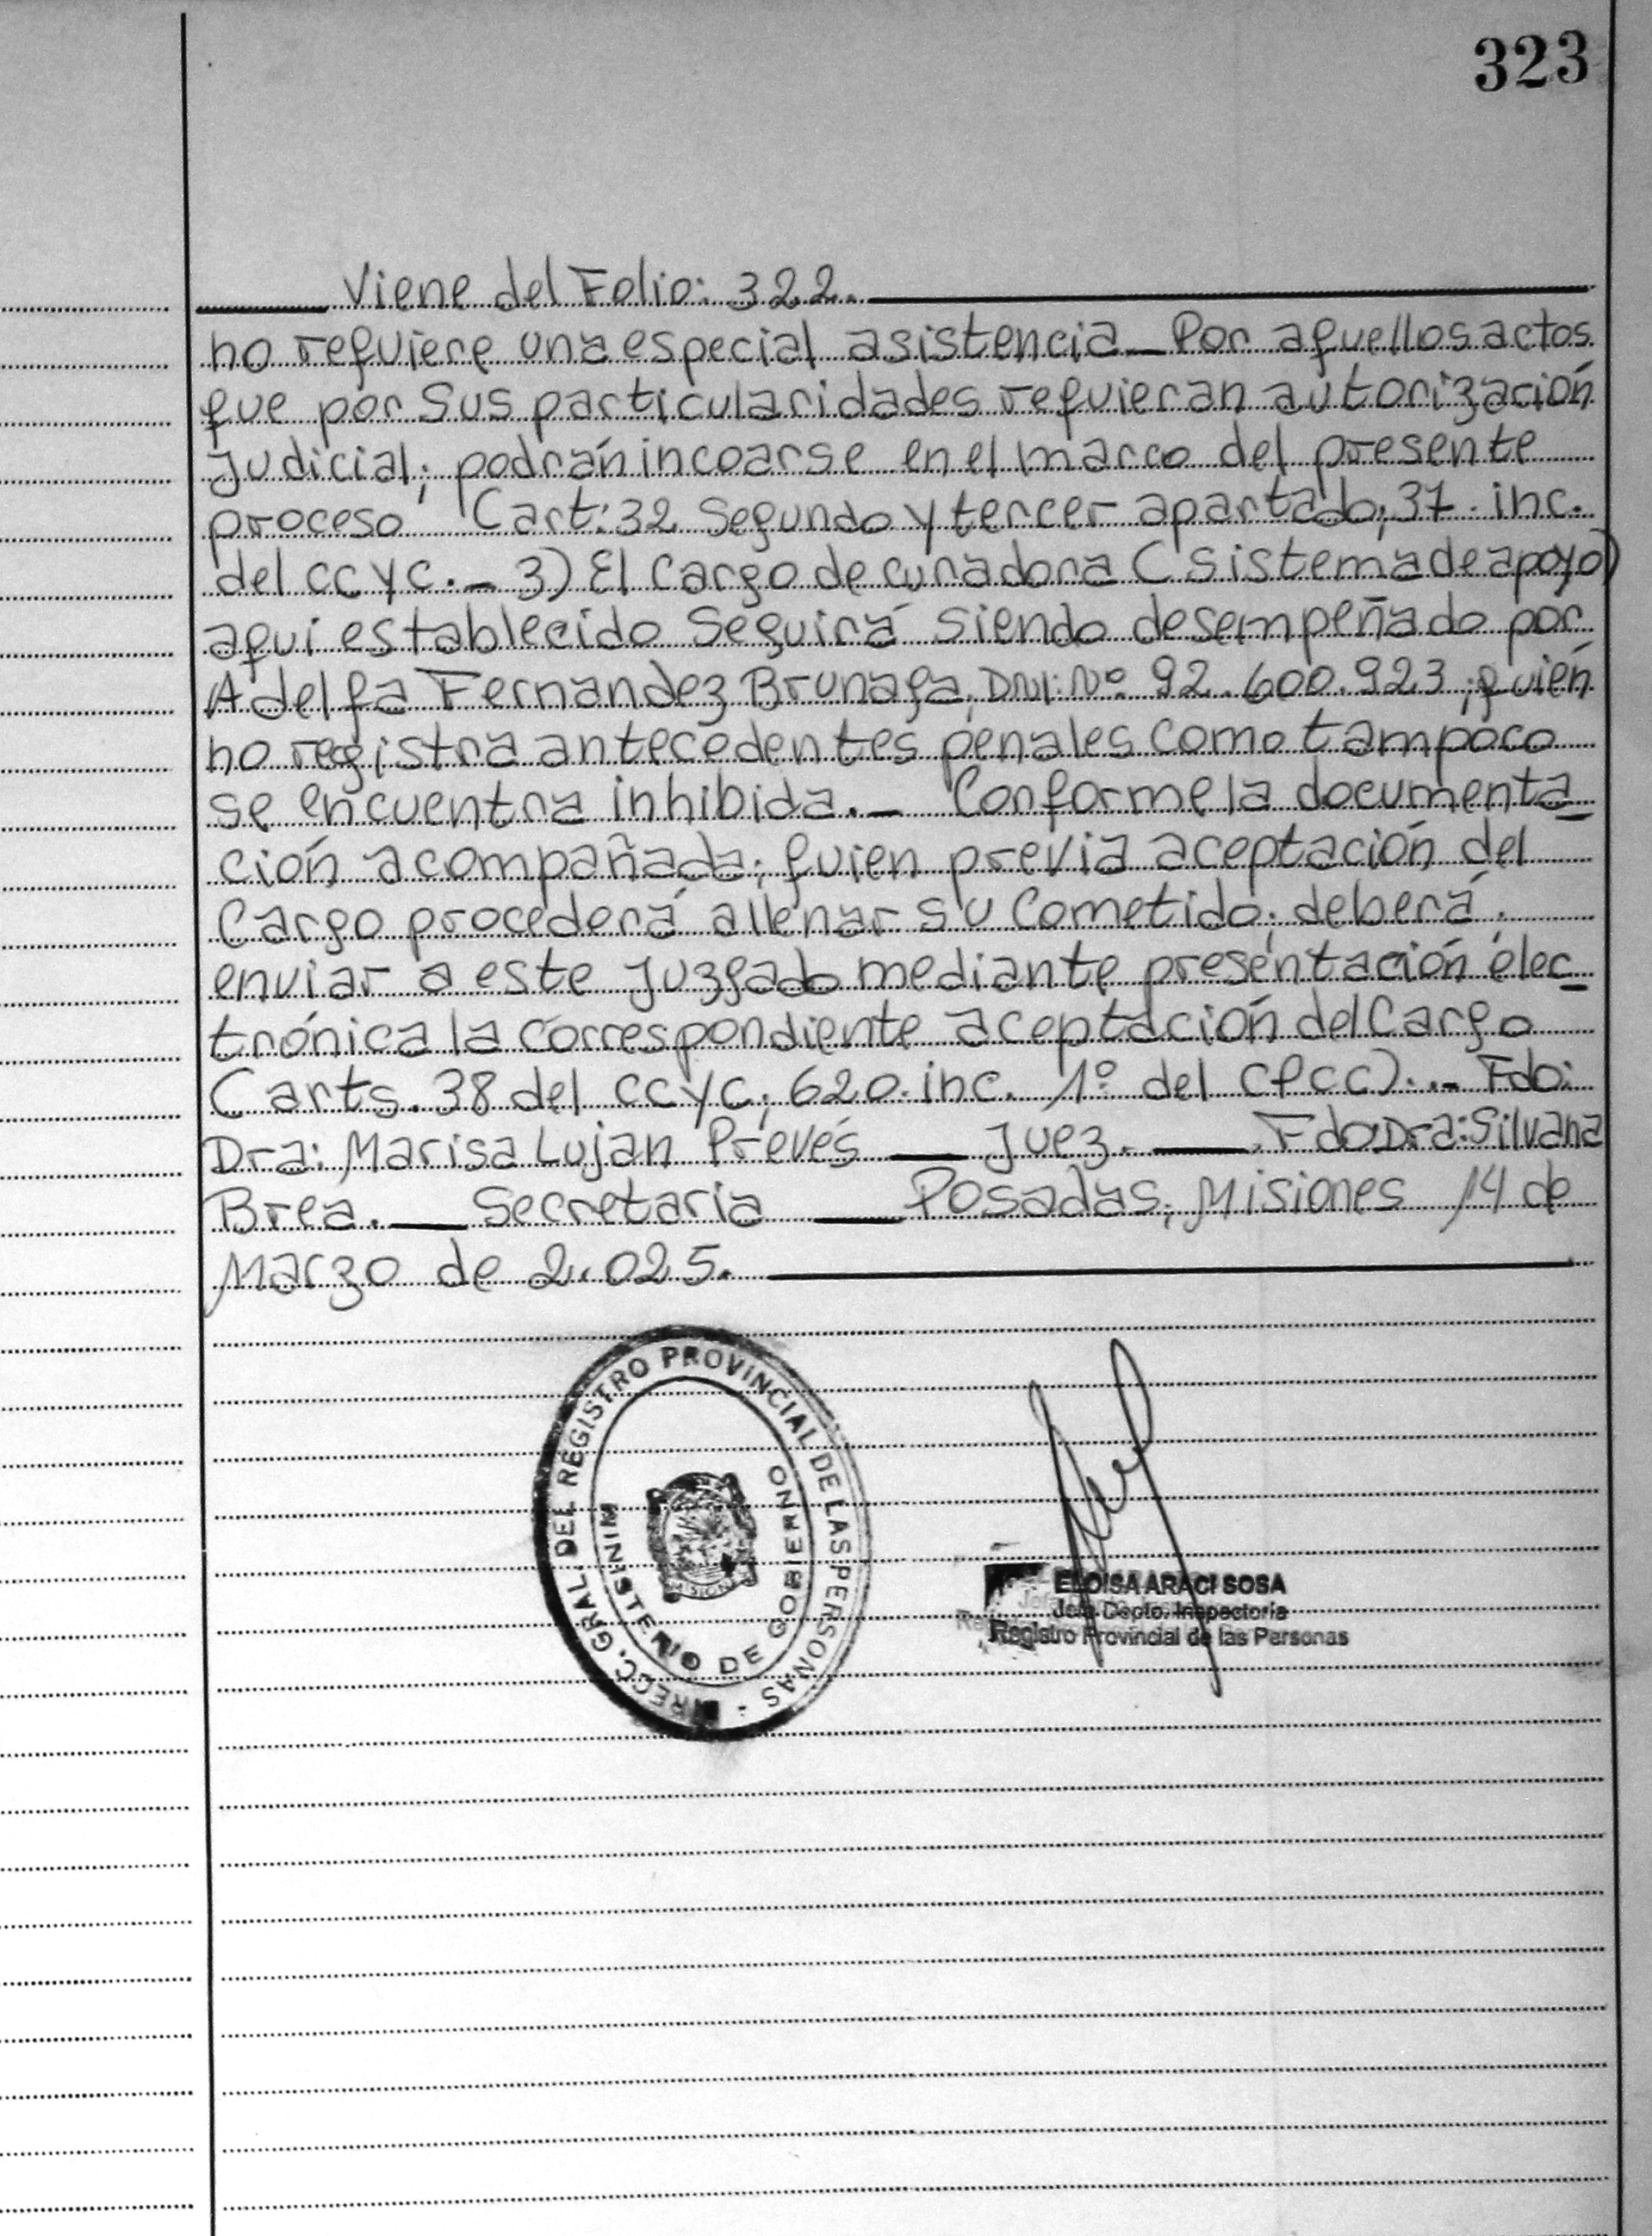 323
Viene del Folio: 322.
no requiere una especial asistencia_ Por aquellos actos
que por sus particularidades requieran autorización
Judicial; podrán incoarse en el marco del presente
proceso (art: 32 Segundo y tercer apartado; 37. inc.
del CCYC._ 3) El Cargo de curadora (sistema de apoyo)
aquí establecido Seguirá siendo desempeñado por
Adelfa Fernandez Brunaga, DNI: Nº 92.600.923; quién
no registra antecedentes penales como tampoco
se encuentra inhibida._ Conforme la documenta_
ción acompañada; quien previa aceptación del
Cargo procederá allenar su Cometido; deberá;
enviar a este Juzgado mediante presentación elec_
trónica la correspondiente aceptación del Cargo
(arts. 38 del CCYC; 620. inc. 1º del CPCC)._ Fdo:
Dra: Marisa Lujan Prevés __ Juez. __ Fdo: Dra: Silvana
Brea. __ Secretaria __ Posadas; Misiones 14 de
Marzo de 2.025.
DIREC. GRAL. DEL REGISTRO PROVINCIAL DE LAS PERSONAS -
MINISTERIO DE GOBIERNO
MISIONES
ELOISA ARACI SOSA
Jefa Depto. Inspectoría
Registro Provincial de las Personas